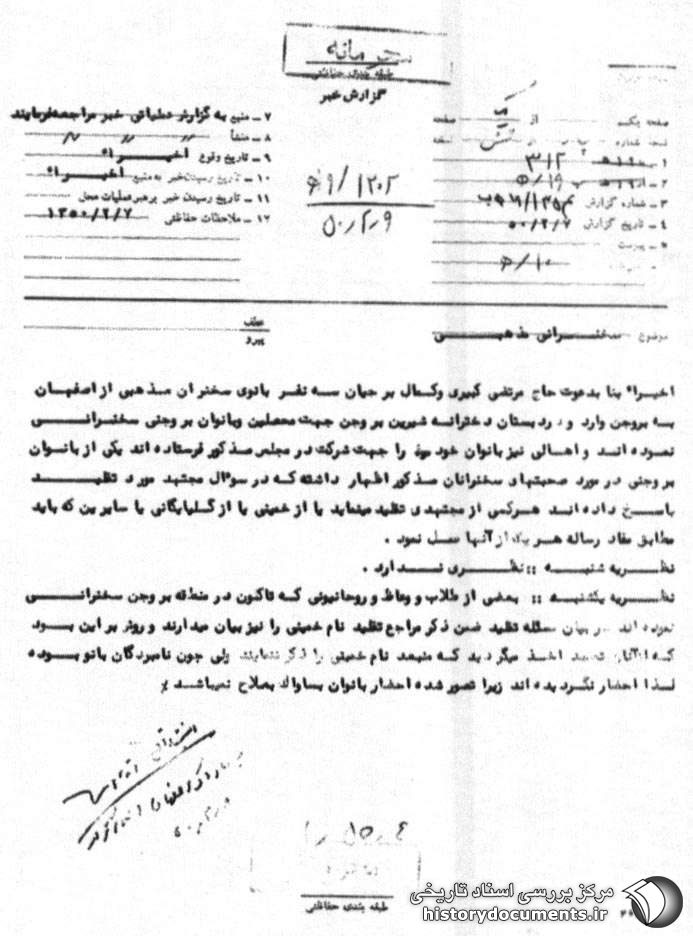 محرمانه
طبقه بندی حفاظتی
گزارش خبر
صفحه یک از یک صفحه
نسخه شماره از نسخه
۱ ـ به ۳۱۲
۲ ـ از
۳ ـ شماره گزارش
۴ ـ تاریخ گزارش ۵۰/۲/۷
۵ ـ پیوست
۷ ـ منبع به گزارش عملیاتی خبر مراجعه فرمایند
۸ ـ منشأ " " "
۹ ـ تاریخ وقوع اخیـــراً
۱۰ ـ تاریخ رسیدن خبر به منبع اخیـــراً
۱۱ ـ تاریخ رسیدن خبر برهبر عملیات محل
۱۲ ـ ملاحظات حفاظتی ۱۳۵۰/۲/۷
۵۰/۲/۹
موضوع سخنرانی مذهبـــی
عطف
پیرو
اخیراً بنا بدعوت حاج مرتضی کبیری وکمال بر جیان سه نفر بانوی سخنران مذهبی از اصفهان
به بروجن وارد و در دبستان دخترانه شیرین بروجن جهت محصلین وبانوان بروجنی سخنرانـــی
نموده اند و اهالی نیز بانوان خود را جهت شرکت در مجلس مذکور فرستاده اند یکی از بانــوان
بروجنی در مورد صحبتهای سخنرانان مذکور اظهار داشته که در سوال مجتهد مورد تقلیـــد
پاســخ داده انــد هرکس از مجتهدی تقلید مینماید یا از خمینی یا از گلپایگانی یا سایرین که باید
مطابق مفاد رساله هر یک از آنها عمل نمود .
نظــریه شنبــه :: نظــری نــدارد .
نظــریه یکشنبــه :: بعضی از طلاب و وعاظ و روحانیونی که تاکنون در منطقه بروجن سخنرانـــی
نموده اند در بیان مسئله تقلید ضمن ذکر مراجع تقلید نام خمینی را نیز بیان میدارند و روش بر این بــود
که از آنان تعهد اخذ میگردید که منبعد نام خمینی را ذکر ننمایند ولی چون نامبردگان بانو بــوده
لــذا احضار نگردیده اند زیرا تصور شده احضار بانوان بساواک بصلاح نمیباشــد
۵۰/۲/۹
طبقه بندی حفاظتی
مرکز بررسی اسناد تاریخی
historydocuments.ir